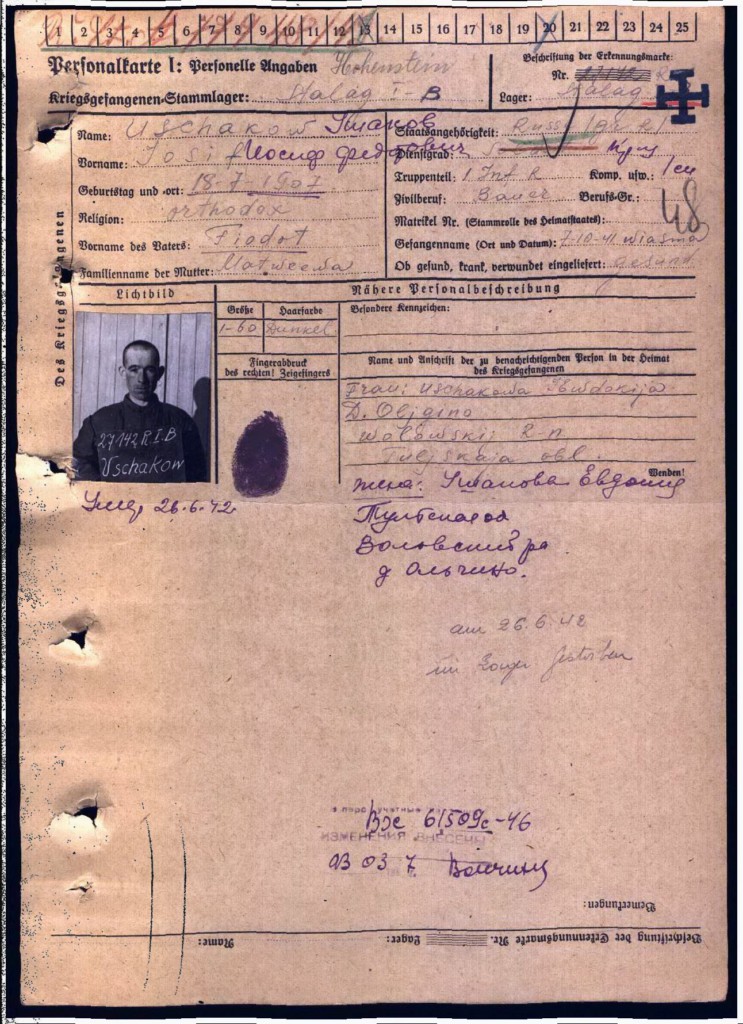 1 2 3 4 5 6 7 8 9 10 11 12 13 14 15 16 17 18 19 20 21 22 23 24 25
Personalkarte I: Personelle Angaben Hohenstein
Kriegsgefangenen-Stammlager: Stalag I-B
Beschriftung der Erkennungsmarke:
Nr.
Lager: Stalag
Des Kriegsgefangenen
Name: Uschakow Ушаков
Vorname: Josif Иосиф Федотович
Geburtstag und -ort: 18-7-1907
Religion: orthodox
Vorname des Vaters: Fiodot
Familienname der Mutter: Matweewa
Staatsangehörigkeit:
Dienstgrad:
Truppenteil: 1 Inf R Komp. usw.:
Zivilberuf: Bauer Berufs-Gr.:
48
Matrikel Nr. (Stammrolle des Heimatstaates):
Gefangennahme (Ort und Datum): 7-10-41 Wiasma
Ob gesund, krank, verwundet eingeliefert: gesund
Lichtbild
Nähere Personalbeschreibung
Größe Haarfarbe
1-60 Dunkel
Besondere Kennzeichen:
Fingerabdruck
des rechten! Zeigefingers
Name und Anschrift der zu benachrichtigenden Person in der Heimat
des Kriegsgefangenen
Frau: Uschakowa Ewdokija
D. Oljgino
Wolowskij R-n
Tuljskaja obl.
Wenden!
27142 R. I.B
Uschakow
жена: Ушакова Евдокия
26.6.42
Тульская
Воловский р
д Ольгино.
am 26.6.42
im Lager gestorben
Вх 61509с-46
ИЗМЕНЕНИЯ ВНЕСЕНЫ
03 03 7
Bemerkungen:
Beschriftung der Erkennungsmarke Nr. Lager: Name: